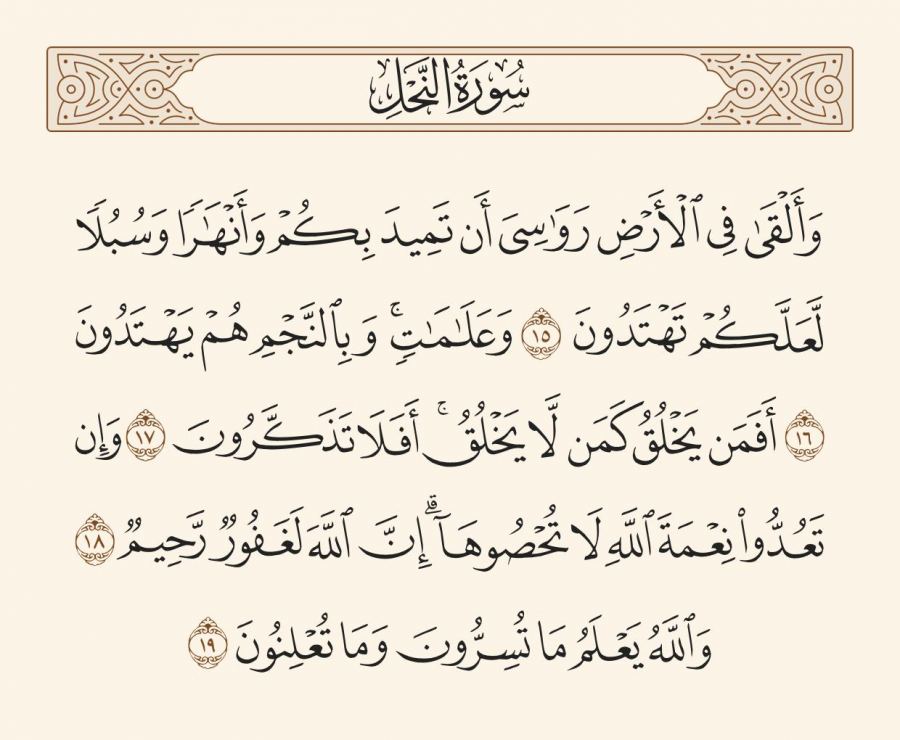 سُورَةُ النَّحْلِ
وَأَلْقَىٰ فِى ٱلْأَرْضِ رَوَٰسِىَ أَن تَمِيدَ بِكُمْ وَأَنْهَٰرًا وَسُبُلًا
لَّعَلَّكُمْ تَهْتَدُونَ ١٥ وَعَلَٰمَٰتٍۚ وَبِٱلنَّجْمِ هُمْ يَهْتَدُونَ
١٦ أَفَمَن يَخْلُقُ كَمَن لَّا يَخْلُقُۚ أَفَلَا تَذَكَّرُونَ ١٧ وَإِن
تَعُدُّوا۟ نِعْمَةَ ٱللَّهِ لَا تُحْصُوهَآۗ إِنَّ ٱللَّهَ لَغَفُورٌ رَّحِيمٌ ١٨
وَٱللَّهُ يَعْلَمُ مَا تُسِرُّونَ وَمَا تُعْلِنُونَ ١٩